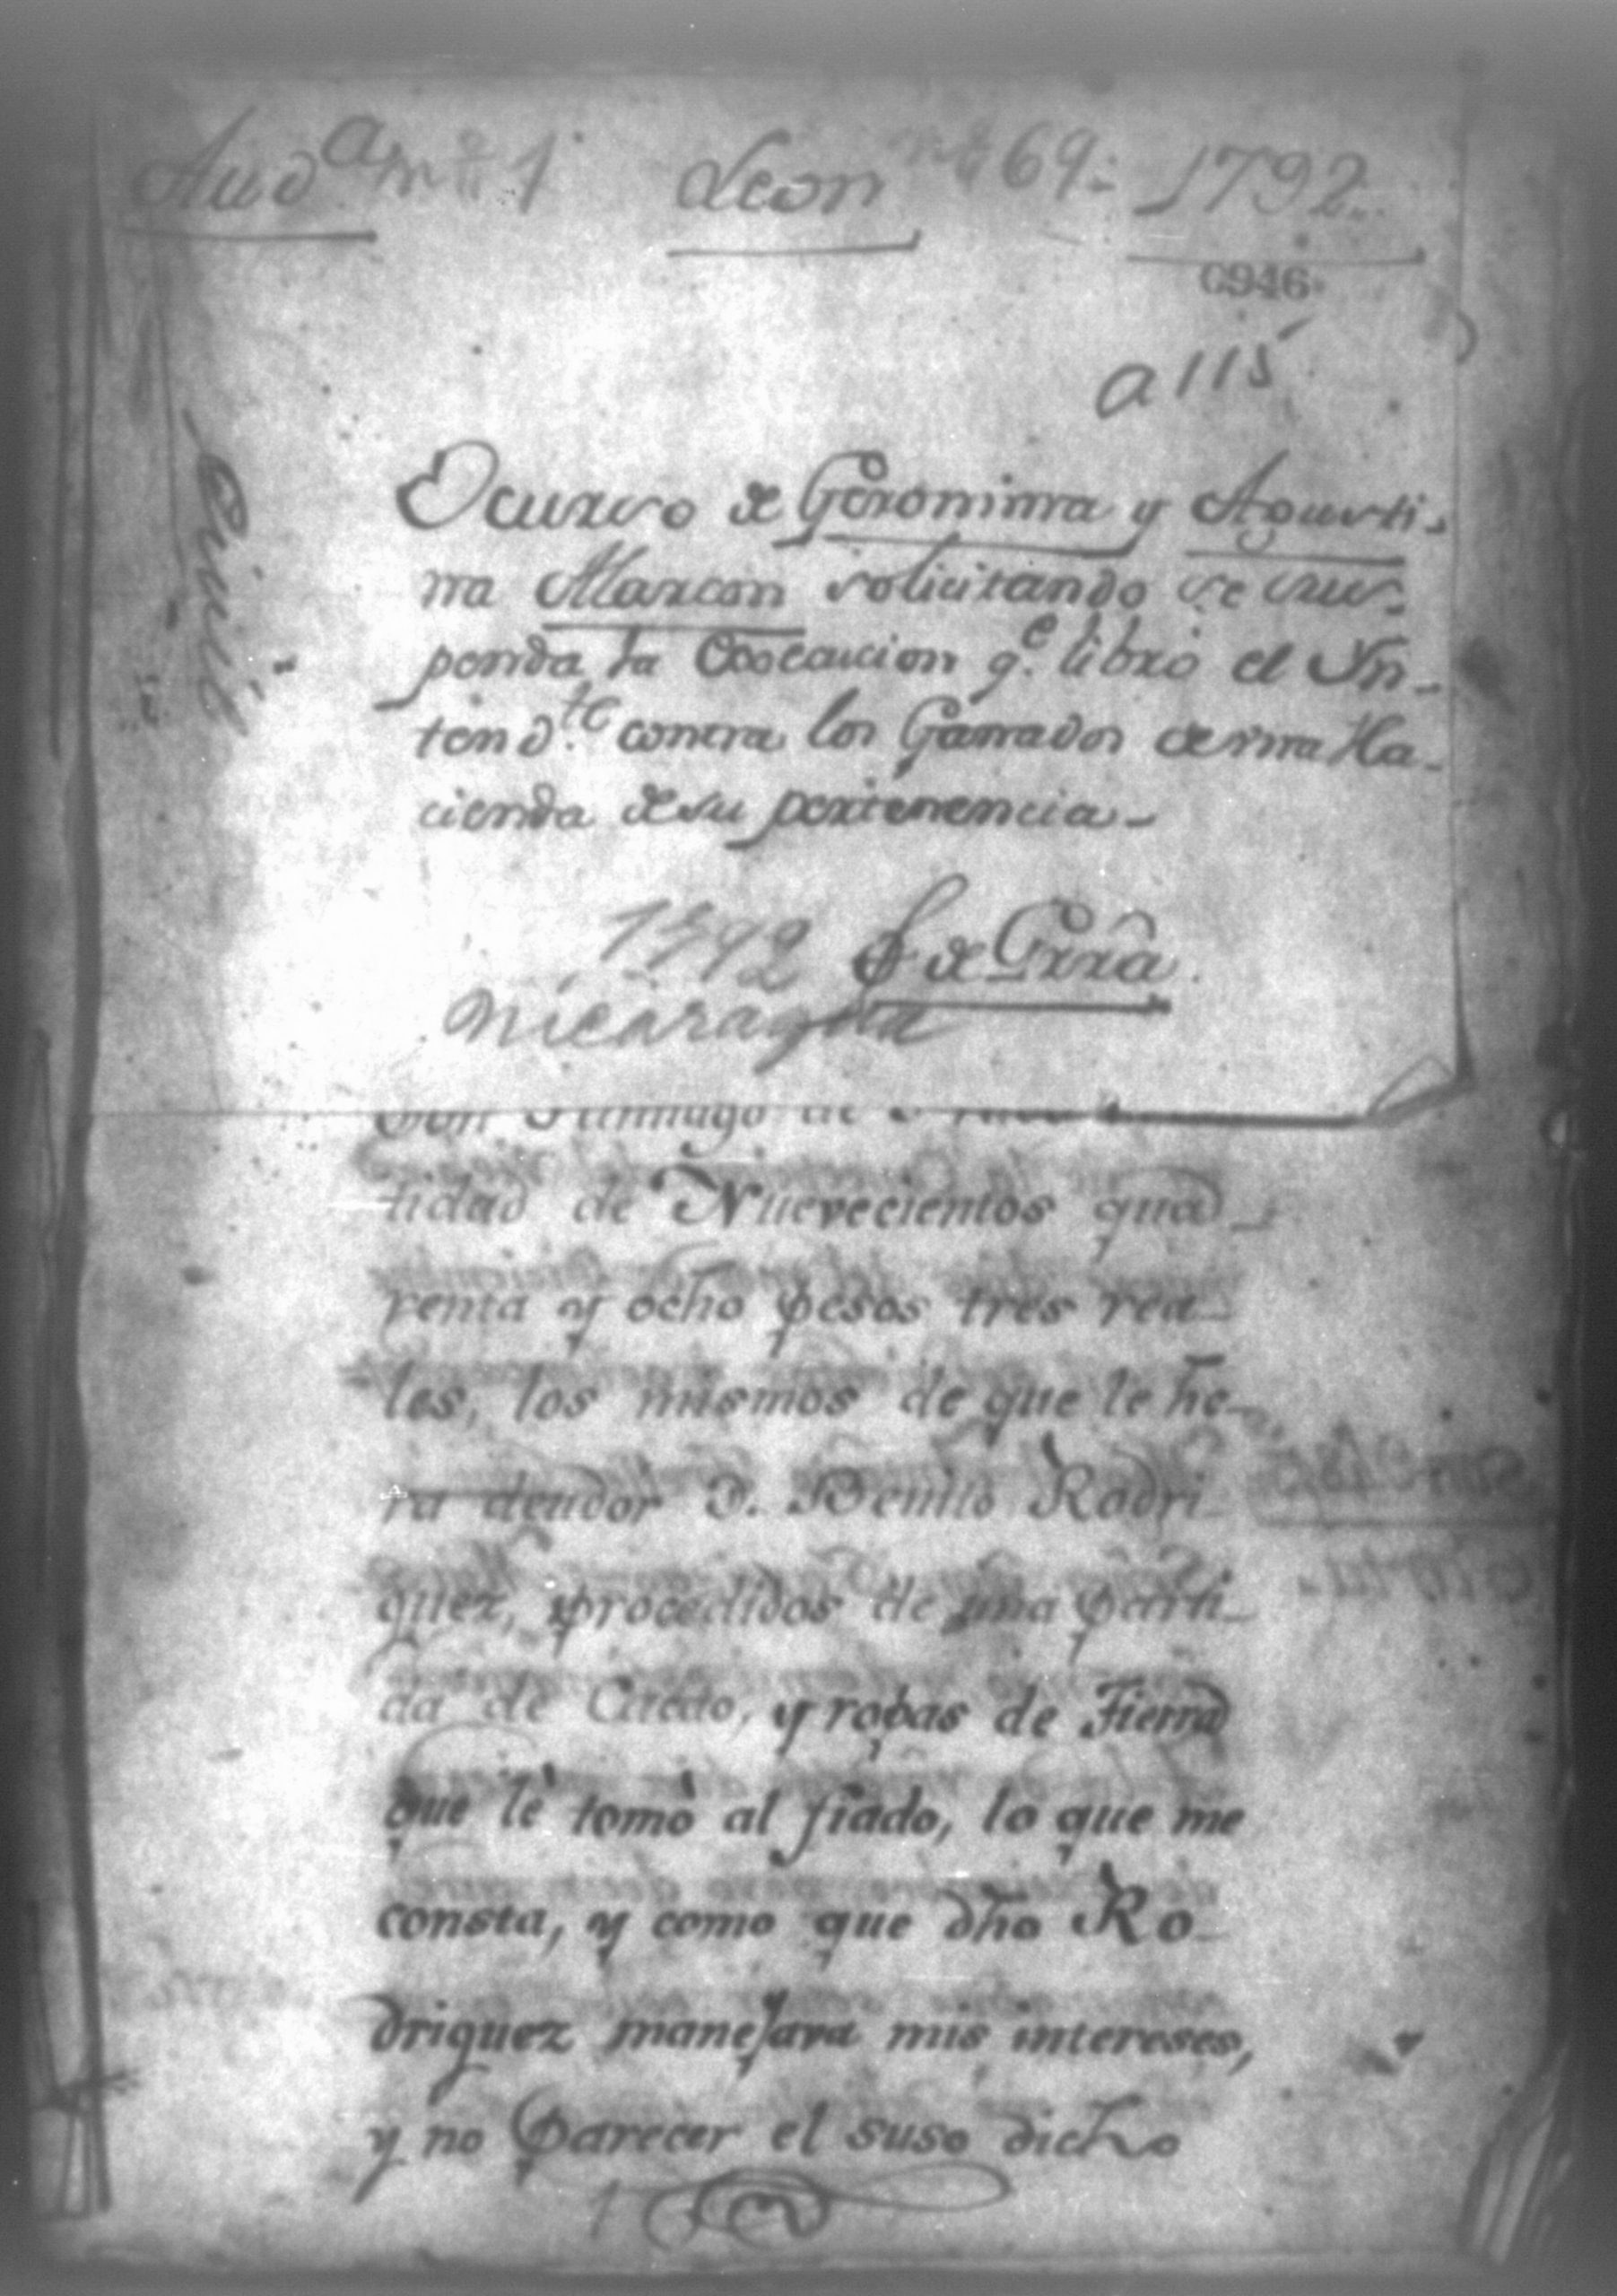 Aud.ª n.º 1 Leon n.º 69. 1792
6946
a 115
Civil
Ocurso de Geronima y Agusti-
na Alarcon solicitando se sus-
penda la Execucion q.e libró el In-
tend.te contra los Ganados de una Ha-
cienda de su pertenencia
1792 S de Grrâ
Nicaragua
Don Santiago de
tidad de Nuevecientos qua-
renta y ocho pesos tres rea-
les, los mismos de que le he-
ra deudor D. Benito Rodri-
guez, procedidos de una parti-
da de Cacao, y ropas de Tierra
que lè tomò al fiado, lo que me
consta, y como que dho Ro-
driguez manejava mis intereses,
y no parecer el suso dicho
1